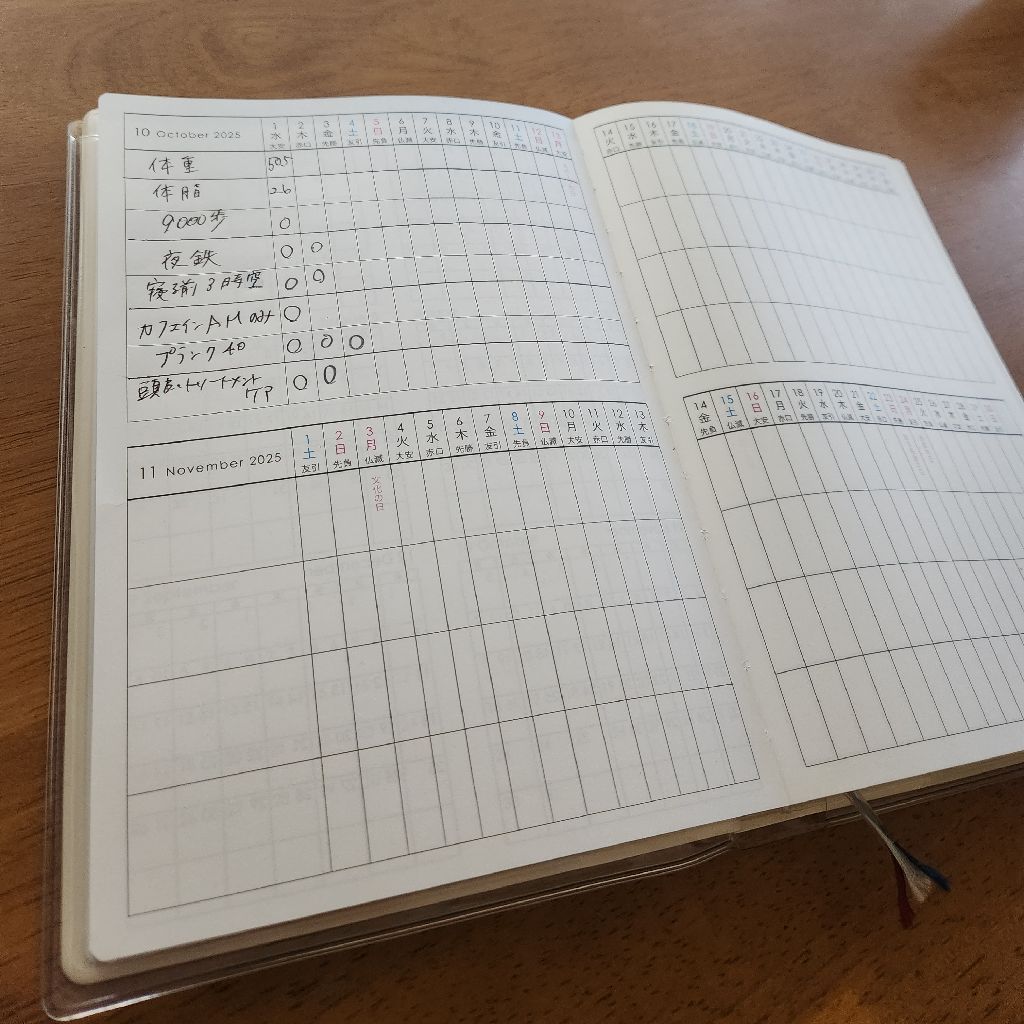 10 October 2025 1 2 3 4 5 6 7 8 9 10 11 12 13
水 木 金 土 日 月 火 水 木 金 土 日 月
大安 赤口 先勝 友引 先負 仏滅 大安 赤口 先勝 友引 先負 大安
体重 50.5
体脂 26
9000歩 ○
夜鉄 ○ ○
寝る前3時間空 ○ ○
カフェインAMのみ ○
プランク40 ○ ○ ○
トリートメント ○ ○
ケア
11 November 2025 1 2 3 4 5 6 7 8 9 10 11 12 13
土 日 月 火 水 木 金 土 日 月 火 水 木
友引 先負 仏滅 大安 赤口 先勝 友引 先負 仏滅 大安 赤口 先勝 友引
文化の日
14 15 16 17
火 水 木 金
赤口 先勝 友引 先負
14 15 16 17 18 19 20 21 22
金 土 日 月 火 水 木 金 土
先負 仏滅 大安 赤口 先勝 友引 仏滅 大安 赤口